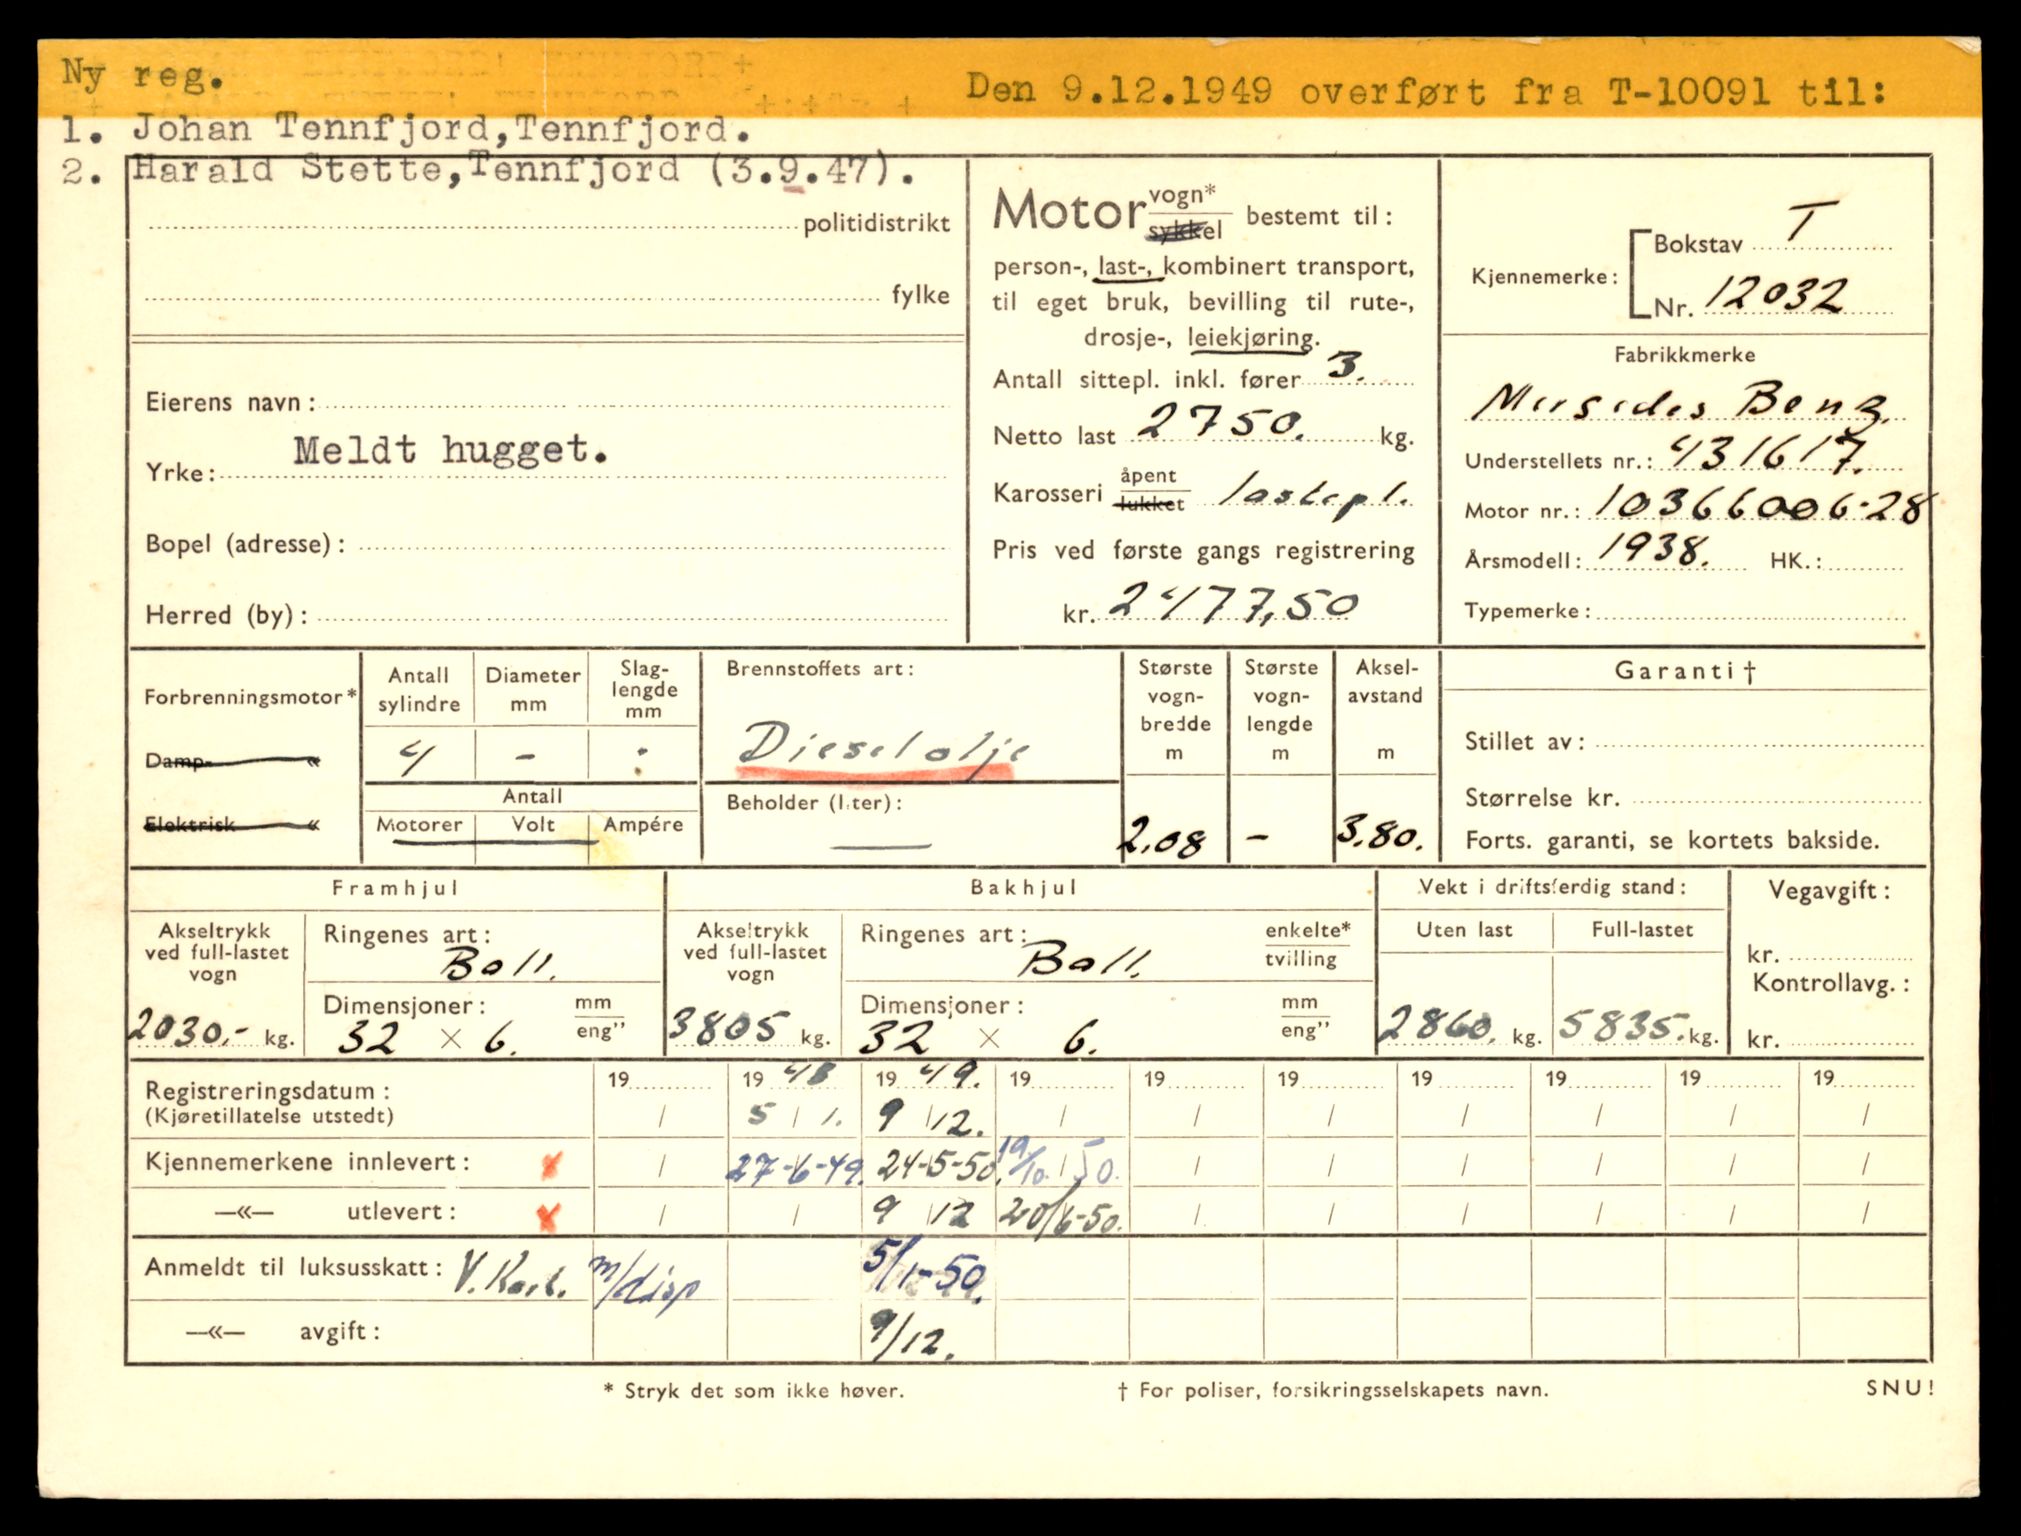 Ny reg.
Den 9.12.1949 overført fra T-10091 til:
1. Johan Tennfjord,Tennfjord.
2. Harald Stette,Tennfjord (3.9.47).
politidistrikt
fylke
Eierens navn:
Meldt hugget.
Yrke:
Bopel (adresse):
Herred (by):
Motor vogn* sykkel bestemt til:
person-, last-, kombinert transport,
til eget bruk, bevilling til rute-,
drosje-, leiekjøring.
Antall sittepl. inkl. fører 3.
Netto last 2750. kg.
Karosseri åpent lukket lastepl.
Pris ved første gangs registrering
kr. 2477,50
Kjennemerke: Bokstav T
Nr. 12032
Fabrikkmerke
Mersedes Benz
Understellets nr.: 431617.
Motor nr.: 10366006-28
Årsmodell: 1938. HK.:
Typemerke:
Forbrenningsmotor*
Damp- «
Elektrisk «
Antall sylindre
Diameter mm
Slag-lengde mm
4 - -
Antall
Motorer Volt Ampére
Brennstoffets art:
Dieselolje
Beholder (liter):
Største vogn-bredde m
2.08
Største vogn-lengde m
-
Aksel-avstand m
3.80.
Garanti †
Stillet av:
Størrelse kr.
Forts. garanti, se kortets bakside.
Framhjul
Akseltrykk ved full-lastet vogn
2030.- kg.
Ringenes art: Ball.
Dimensjoner: mm eng"
32 × 6.
Bakhjul
Akseltrykk ved full-lastet vogn
3805 kg.
Ringenes art: Ball. enkelte* tvilling
Dimensjoner: mm eng"
32 × 6.
Vekt i driftsferdig stand:
Uten last Full-lastet
2860. kg. 5835. kg.
Vegavgift:
kr.
Kontrollavg.:
kr.
19 19 48 19 49. 19 19 19 19 19 19 19
Registreringsdatum: / 5 / 1. 9 / 12. / / / / / / /
(Kjøretillatelse utstedt)
Kjennemerkene innlevert: x / 27-6-49. 24-5-50. 19/10. 50. / / / / / /
—«— utlevert: x / / 9 / 12 20/6-50. / / / / / /
Anmeldt til luksusskatt: m/disp 5/1-50.
—«— avgift: 9/12.
* Stryk det som ikke høver.
† For poliser, forsikringsselskapets navn.
SNU!